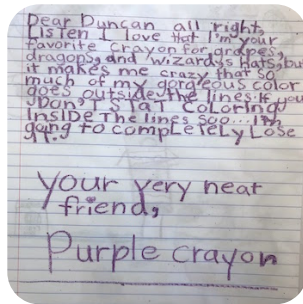 Dear Duncan all right,
LisTen I love that I'm your
favorite Crayon for grapes,
dragons, and wizards hats, but
it makes me crazy that so
much of my gorgeous color
goes outside the lines. If you
DON'T START Coloring
InsIDe The lines soo... I'm
going to compLeTeLy Lose
IT.
your very neat
friend,
Purple crayon